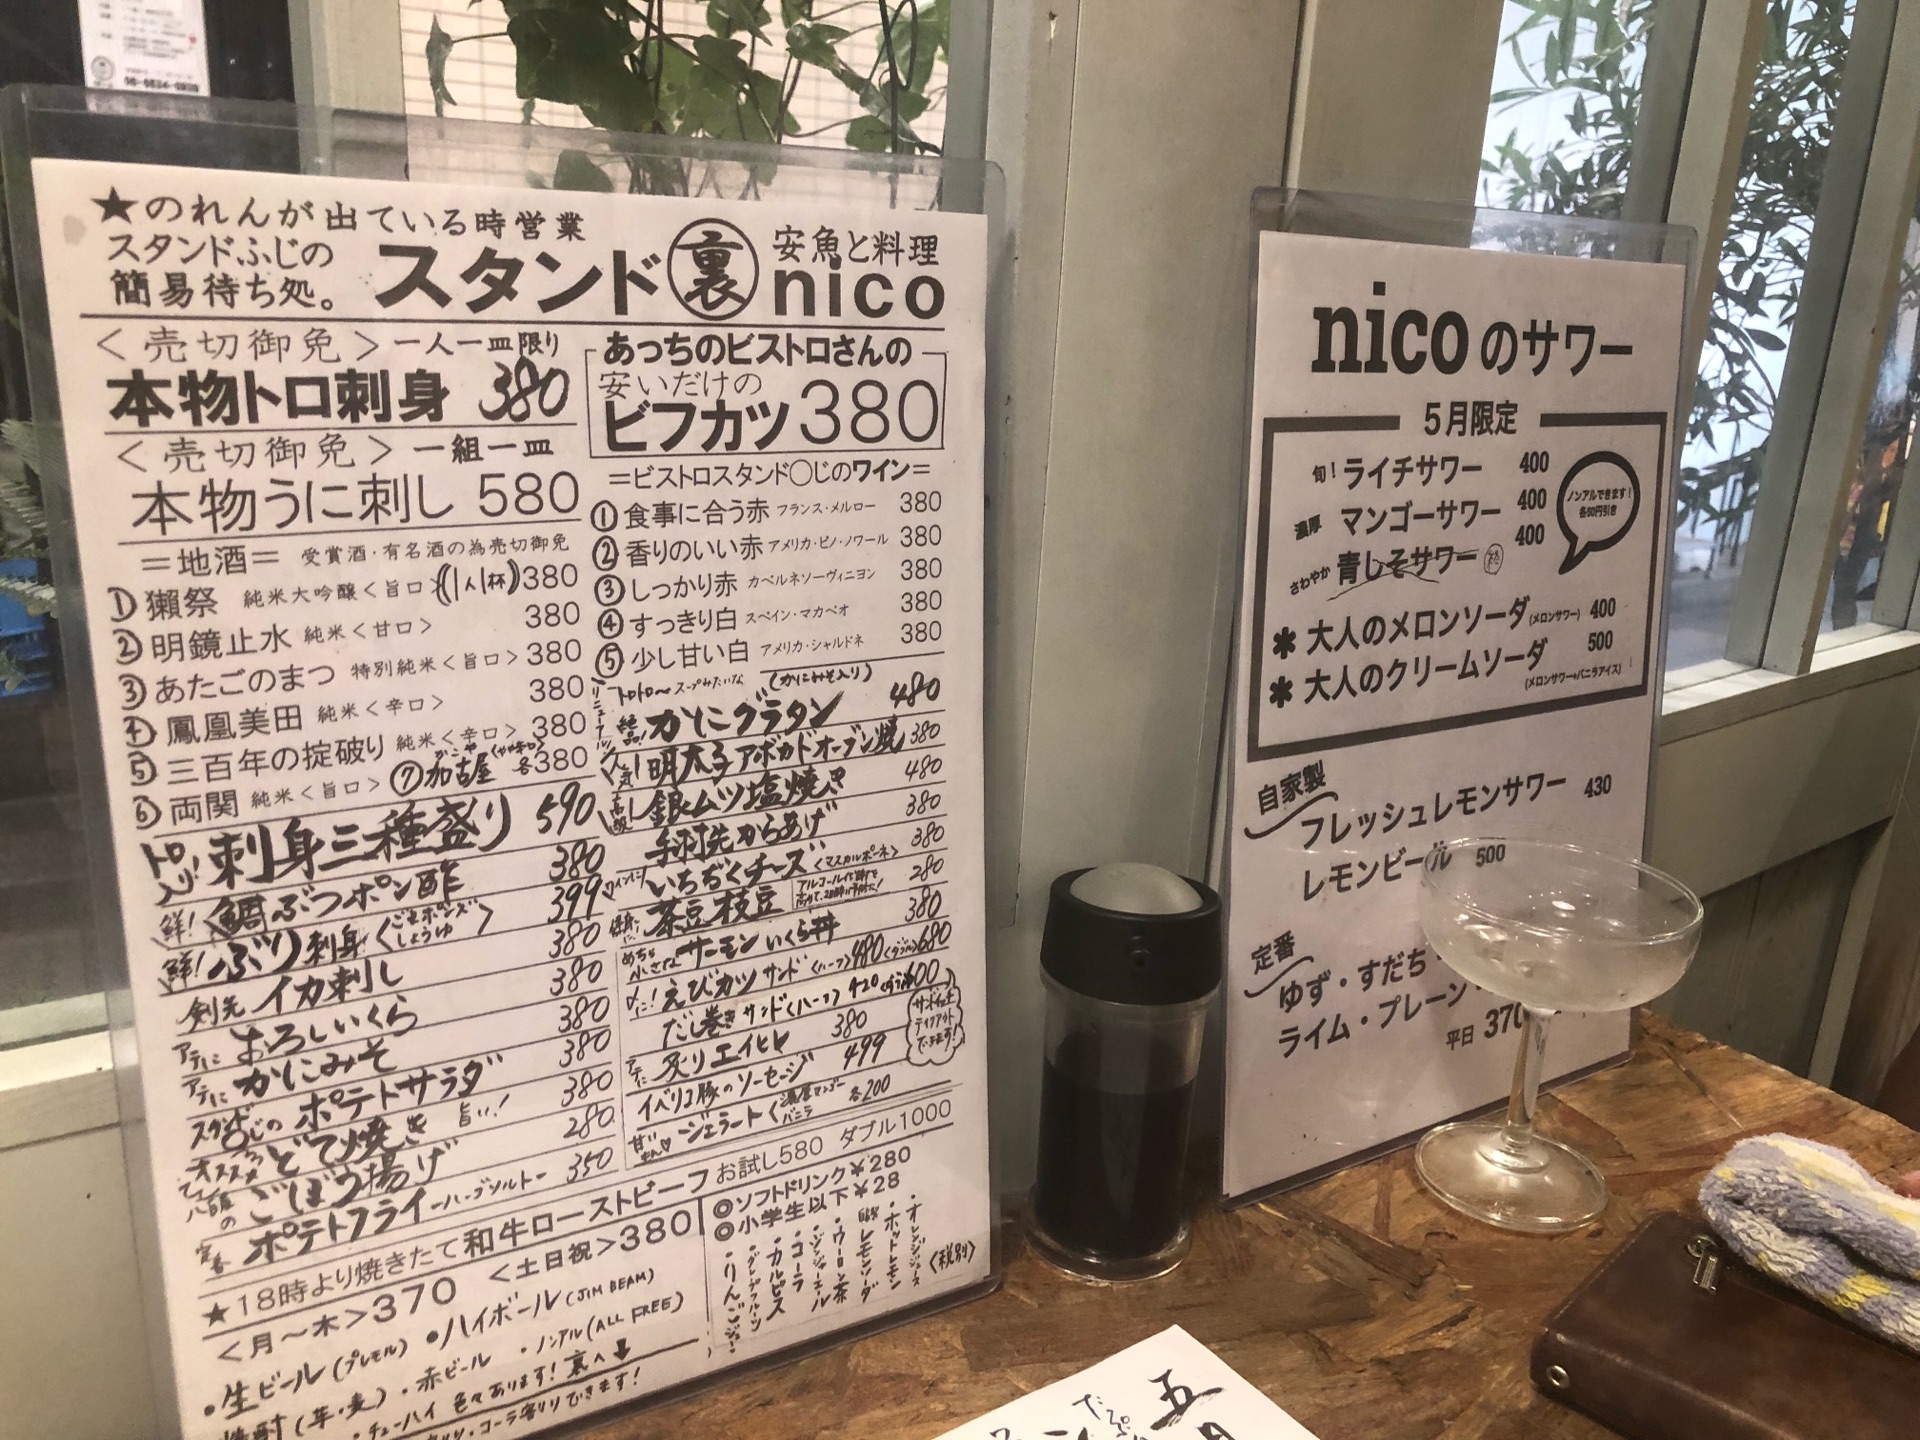 ★のれんが出ている時営業
スタンドふじの
簡易待ち処。
スタンド裏
安魚と料理
nico
＜売切御免＞一人一皿限り
本物トロ刺身 380
＜売切御免＞一組一皿
本物うに刺し 580
＝地酒＝ 受賞酒・有名酒の為売切御免
①獺祭 純米大吟醸＜旨口＞(1人1杯) 380
②明鏡止水 純米＜甘口＞ 380
③あたごのまつ 特別純米＜旨口＞ 380
④鳳凰美田 純米＜辛口＞ 380
⑤三百年の掟破り 純米＜辛口＞ 380
⑥両関 純米＜旨口＞ ⑦加古屋 各380
トロ入り! 刺身三種盛り 590
鮮! 鯛ぶつポン酢 380
鮮! ぶり刺身 399
剣先 イカ刺し 380
アテに おろしいくら 380
アテに かにみそ 380
スタンド〇じの ポテトサラダ 380
オススメ どて焼き 旨い! 380
ごぼう揚げ 280
定番 ポテトフライ ーハーブソルトー 350
あっちのビストロさんの
安いだけの
ビフカツ 380
＝ビストロスタンド〇じのワイン＝
①食事に合う赤 フランス・メルロー 380
②香りのいい赤 アメリカ・ピノ・ノワール 380
③しっかり赤 カベルネソーヴィニヨン 380
④すっきり白 スペイン・マカベオ 380
⑤少し甘い白 アメリカ・シャルドネ 380
トロトロ〜スープみたいな (かにみそ入り)
絶品! かにグラタン 480
人気! 明太子アボカドオーブン焼 380
高級! 銀ムツ塩焼き 480
手羽先からあげ 380
ワインに! いちぢくチーズ＜マスカルポーネ＞ 380
茶豆枝豆 280
めちゃ小さな サーモンいくら丼 380
えびカツサンド＜ハーフ＞480＜ダブル＞680
だし巻きサンド＜ハーフ＞420 600
サンドイッチ テイクアウト できます!
アテに 炙りエイヒレ 380
イベリコ豚のソーセージ 499
ジェラート＜濃厚マンゴー バニラ 各200
★18時より焼きたて和牛ローストビーフ お試し580 ダブル1000
＜月〜木＞370 ＜土日祝＞380
・生ビール(プレモル) ・ハイボール(JIM BEAM)
焼酎(芋・麦) ・赤ビール ・ノンアル(ALL FREE)
・チューハイ 色々あります! 裏へ⬇
・コーラ割りできます!
◎ソフトドリンク￥280
◎小学生以下￥28
・オレンジジュース
・ホットレモン
自家製レモンソーダ
・ウーロン茶
・ジンジャーエール
・コーラ
・カルピス
・グレープフルーツ
・りんごジュース
＜税別＞
nicoのサワー
5月限定
旬! ライチサワー 400
濃厚 マンゴーサワー 400
さわやか 青しそサワー 終 400
ノンアルできます!
各50円引き
＊大人のメロンソーダ(メロンサワー) 400
＊大人のクリームソーダ 500
(メロンサワー+バニラアイス)
自家製
フレッシュレモンサワー 430
レモンビール 500
定番
ゆず・すだち・
ライム・プレーン・
平日 370
五月